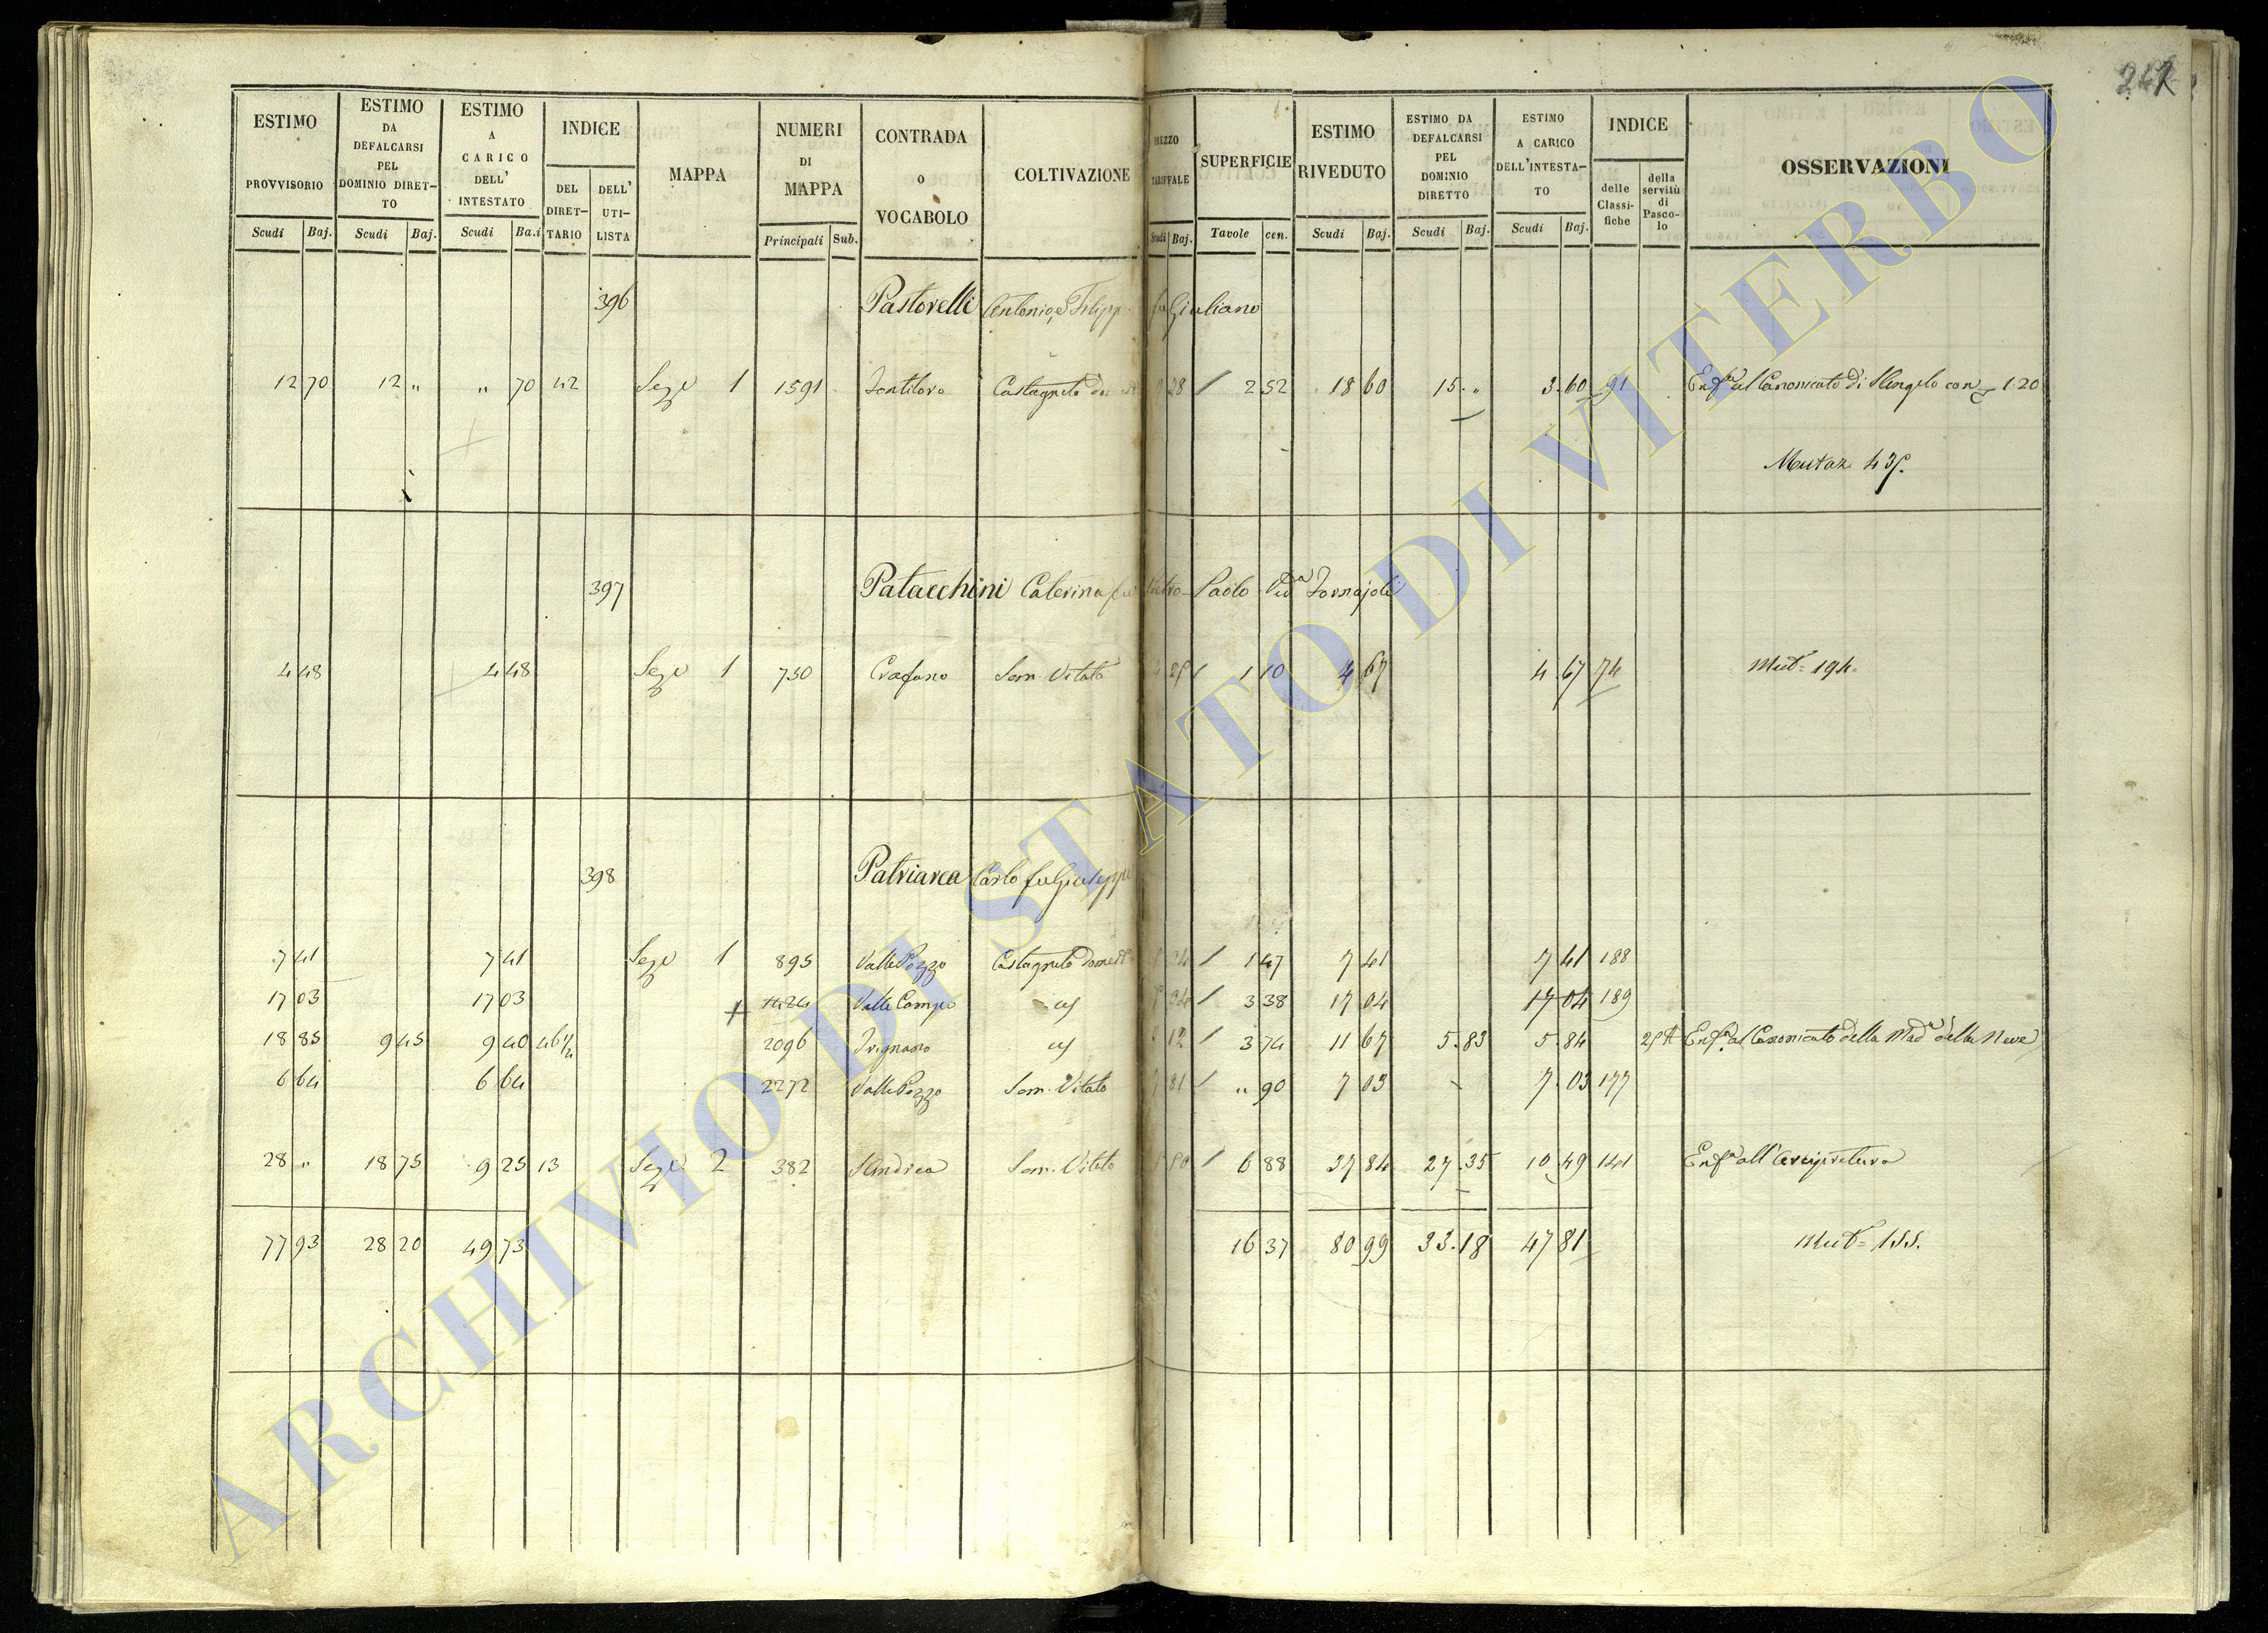 247
ESTIMO PROVVISORIO Scudi Baj.
ESTIMO DA DEFALCARSI PEL DOMINIO DIRET-TO Scudi Baj.
ESTIMO A CARICO DELL' INTESTATO Scudi Ba.i
INDICE DEL DIRET-TARIO DELL' UTI-LISTA
MAPPA
NUMERI DI MAPPA Principali Sub.
CONTRADA O VOCABOLO
COLTIVAZIONE
PREZZO TARIFFALE Scudi Baj.
SUPERFICIE Tavole cen.
ESTIMO RIVEDUTO Scudi Baj.
ESTIMO DA DEFALCARSI PEL DOMINIO DIRETTO Scudi Baj.
ESTIMO A CARICO DELL'INTESTA-TO Scudi Baj.
INDICE delle Classi-fiche della servitù di Pasco-lo
OSSERVAZIONI
396 Pastorelli Antonio, e Filippo fu Giuliano
12 70 12 „ „ 70 42 Sez. 1 1591 Castagneto 28 / 2 52 18 60 15 „ 3 60 91 Enf.a al Canonicato di S Angelo con 1 20
Mutaz. 435.
397 Patacchini Caterina fu Pietro Paolo Ved.a Fornajoli
4 48 4 48 Sez. 1 750 Crafano Sem. Vitato 4 25 / 1 10 4 67 4 67 74 Mut. 194.
398 Patriarca Carlo fu Giuseppe
7 41 7 41 Sez. 1 895 Valle Pozzo Castagneto domest. / 1 47 7 41 7 41 188
17 03 17 03 1424 Valle Campo / 3 38 17 04 17 04 189
18 85 9 45 9 40 46½ 2096 Trignano 12 / 3 74 11 67 5.83 5.84 Enf.a al Canonicato della Mad.a della Neve
6 64 6 64 2272 Valle Pozzo Sem. Vitato 7 81 / „ 90 7 03 7 03 177
28 „ 18 75 9 25 13 Sez. 2 382 S Andrea Sem. Vitato / 6 88 37 84 27.35 10 49 141 Enf.a all' Arcipretura
77 93 28 20 49 73 16 37 80 99 33.18 47 81 Mut. 155.
ARCHIVIO DI STATO DI VITERBO